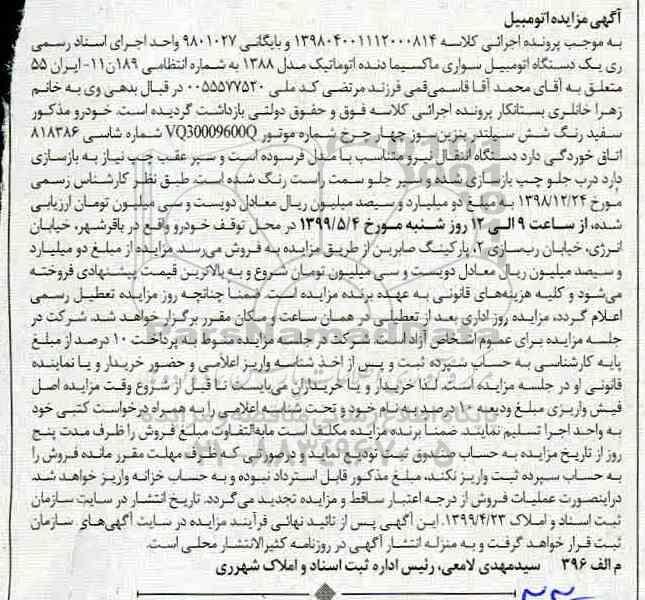 آگهی مزایده اتومبیل
به موجب پرونده اجرائی کلاسه ۱۳۹۸۰۴۰۰۱۱۱۲۰۰۰۸۱۴ و بایگانی ۹۸۰۱۰۲۷ واحد اجرای اسناد رسمی
ری یک دستگاه اتومبیل سواری ماکسیما دنده اتوماتیک مدل ۱۳۸۸ به شماره انتظامی ۱۸۹ن۱۱- ایران ۵۵
متعلق به آقای محمد آقا قاسمی‌قمی فرزند مرتضی کد ملی ۰۰۵۵۵۷۷۵۲۰ در قبال بدهی وی به خانم
زهرا خانلری بستانکار پرونده اجرائی کلاسه فوق و حقوق دولتی بازداشت گردیده است. خودرو مذکور
سفید رنگ شش سیلندر بنزین‌سوز چهار چرخ شماره موتور VQ30009600Q شماره شاسی ۸۱۸۳۸۶
اتاق خوردگی دارد دستگاه انتقال نیرو متناسب با مدل فرسوده است و سپر عقب چپ نیاز به بازسازی
دارد درب جلو چپ بازسازی شده و سپر جلو سمت راست رنگ شده است. طبق نظر کارشناس رسمی
مورخ ۱۳۹۸/۱۲/۲۴ به مبلغ دو میلیارد و سیصد میلیون ریال معادل دویست و سی میلیون تومان ارزیابی
شده، از ساعت ۹ الی ۱۲ روز شنبه مورخ ۱۳۹۹/۵/۴ در محل توقف خودرو واقع در باقرشهر، خیابان
انرژی، خیابان رب‌سازی ۲، پارکینگ صابرین از طریق مزایده به فروش می‌رسد. مزایده از مبلغ دو میلیارد
و سیصد میلیون ریال معادل دویست و سی میلیون تومان شروع و به بالاترین قیمت پیشنهادی فروخته
می‌شود و کلیه هزینه‌های قانونی به عهده برنده مزایده است. ضمناً چنانچه روز مزایده تعطیل رسمی
اعلام گردد، مزایده روز اداری بعد از تعطیلی در همان ساعت و مکان مقرر برگزار خواهد شد. شرکت در
جلسه مزایده برای عموم اشخاص آزاد است. شرکت در جلسه مزایده منوط به پرداخت ۱۰ درصد از مبلغ
پایه کارشناسی به حساب سپرده ثبت و پس از اخذ شناسه واریز اعلامی و حضور خریدار و یا نماینده
قانونی او در جلسه مزایده است. لذا خریدار و یا خریداران می‌بایست تا قبل از شروع وقت مزایده اصل
فیش واریزی مبلغ ودیعه ۱۰ درصد به نام خود و تحت شناسه اعلامی را به همراه درخواست کتبی خود
به واحد اجرا تسلیم نمایند. ضمناً برنده مزایده مکلف است مابه‌التفاوت مبلغ فروش را ظرف مدت پنج
روز از تاریخ مزایده به حساب صندوق ثبت تودیع نماید و درصورتی که ظرف مهلت مقرر مانده فروش را
به حساب سپرده ثبت واریز نکند، مبلغ مذکور قابل استرداد نبوده و به حساب خزانه واریز خواهد شد.
دراینصورت عملیات فروش از درجه اعتبار ساقط و مزایده تجدید می‌گردد. تاریخ انتشار در سایت سازمان
ثبت اسناد و املاک ۱۳۹۹/۴/۲۳. این آگهی پس از تائید نهائی فرآیند مزایده در سایت آگهی‌های سازمان
ثبت قرار خواهد گرفت و به منزله انتشار آگهی در روزنامه کثیرالانتشار محلی است.
م الف ۳۹۶ سیدمهدی لامعی، رئیس اداره ثبت اسناد و املاک شهرری